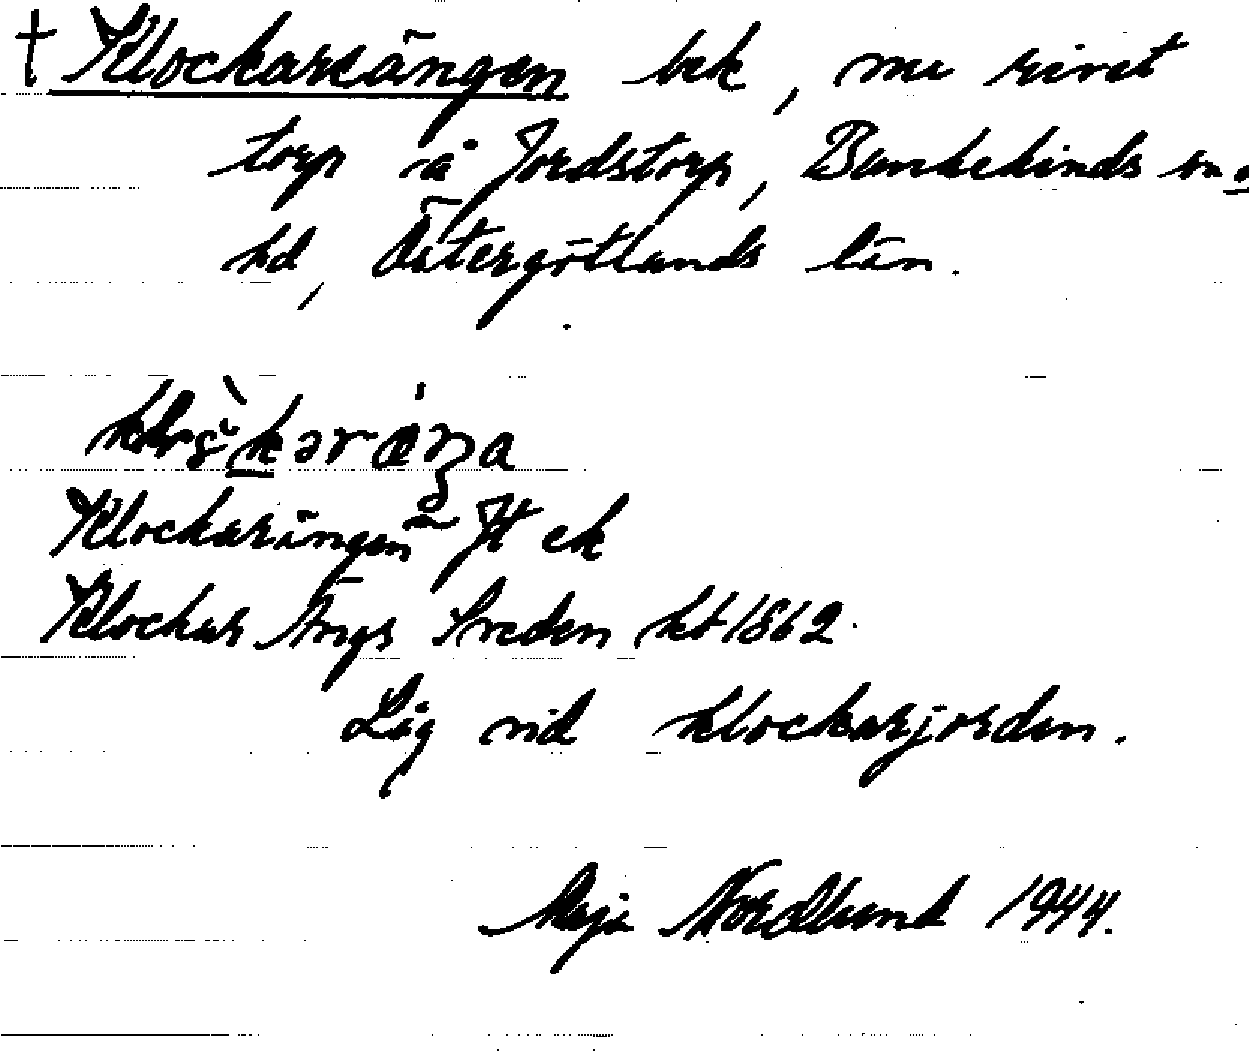 † Klockareängen bek, nu rivet
torp å Jordstorp, Bankekinds sn o
hd, Östergötlands län.
Klockarängen Jt ek
Klockar Ängs Sveden hfl 1862
Låg vid klockarjorden.
Maja Nordlund 1944.